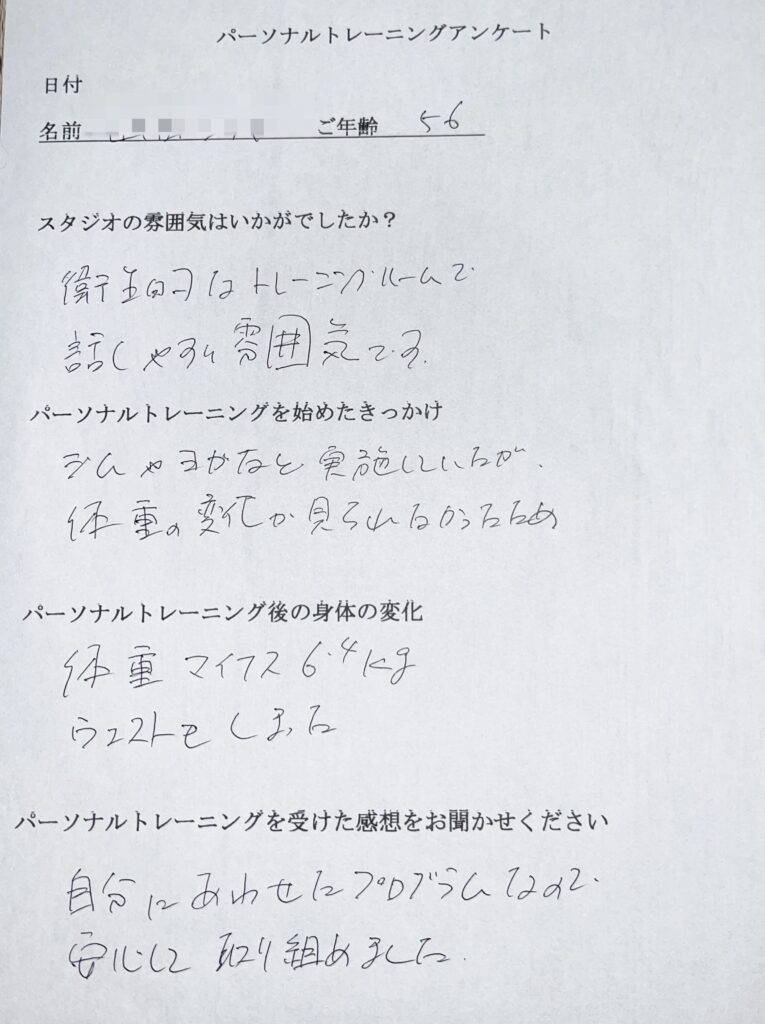 パーソナルトレーニングアンケート
日付
名前 ご年齢 56
スタジオの雰囲気はいかがでしたか？
衛生的なトレーニングルームで
話しやすい雰囲気です。
パーソナルトレーニングを始めたきっかけ
ジムやヨガなど実施しているが、
体重の変化が見られなかったため
パーソナルトレーニング後の身体の変化
体重マイナス6.4kg
ウエストもしまった
パーソナルトレーニングを受けた感想をお聞かせください
自分にあわせたプログラムなので
安心して取り組めました。